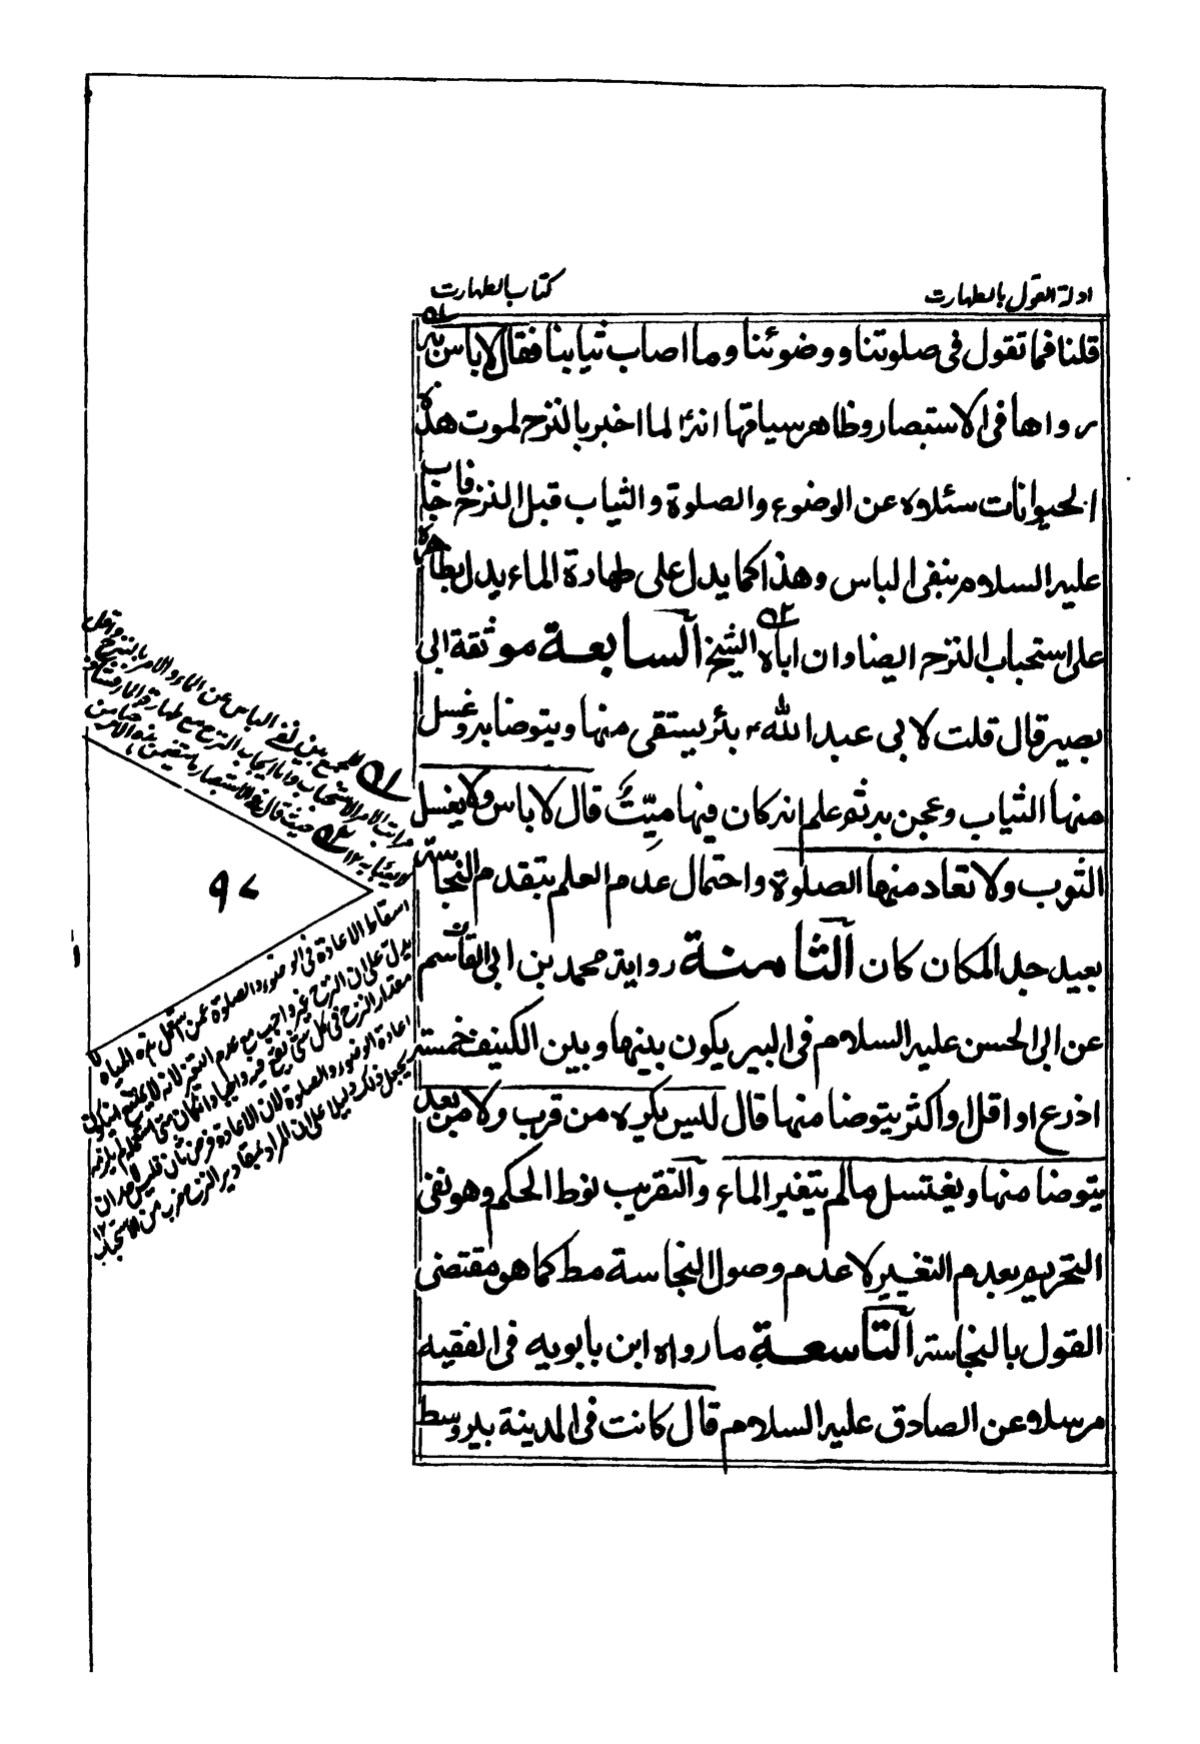 ادلة القول بالطهارت
كتاب الطهارت
قلنا فما تقول فى صلوتنا ووضوئنا وما اصاب ثيابنا فقال لا باس به
رواها فى الاستبصار وظاهر سياقها انه لما اخبر بالنزح لموت هذه
الحيوانات سئلوه عن الوضوء والصلوة والثياب قبل النزح فاجاب
عليه السلام بنفى الباس وهذا كما يدل على طهارة الماء يدل بظاهره
على استحباب النزح ايضا وان اباه الشيخ السابعة موثقة ابى
بصير قال قلت لابى عبد الله ع بئر يستقى منها ويتوضا به وغسل
منها الثياب وعجن به ثم علم انه كان فيها ميّتٌ قال لا باس ولا يغسل
الثوب ولا تعاد منها الصلوة واحتمال عدم العلم بتقدم النجاسة
بعيد جدا لمكان كان الثامنة رواية محمد بن ابى القاسم
عن ابى الحسن عليه السلام فى البير يكون بينها وبين الكنيف خمسة
اذرع او اقل او اكثر يتوضا منها قال ليس يكره من قرب ولا من بعد
يتوضا منها ويغتسل مالم يتغير الماء والتقريب نوط الحكم وهو نفى
التحريم بعدم التغيير لا عدم وصول النجاسة مط كما هو مقتضى
القول بالنجاسة التاسعة ما رواه ابن بابويه فى الفقيه
مرسلا عن الصادق عليه السلام قال كانت فى المدينة بير وسط
للجمع بين نفى الباس عن الماء والامر بالنزح واقل
مراتب الامر الاستحباب واما ايجاب النزح مع طهارة الماء
حيث قال فى الاستبصار
٩٧
اسقاط الاعادة فى الوضوء والصلوة عمن استعمل هذه المياه لا
يدل على ان النزح غير واجب مع عدم التغير لانه لا يمتنع ان يكون
مقدار النزح فى كل شئ يقع فيه واجبا وان كان متى استعمله لم يلزمه
اعادة الوضوء والصلوة لان الاعادة فرض ثان فليس لاحد ان
يجعل ذلك دليلا على ان المراد بمقادير النزح ضرب من الاستحباب ١٢